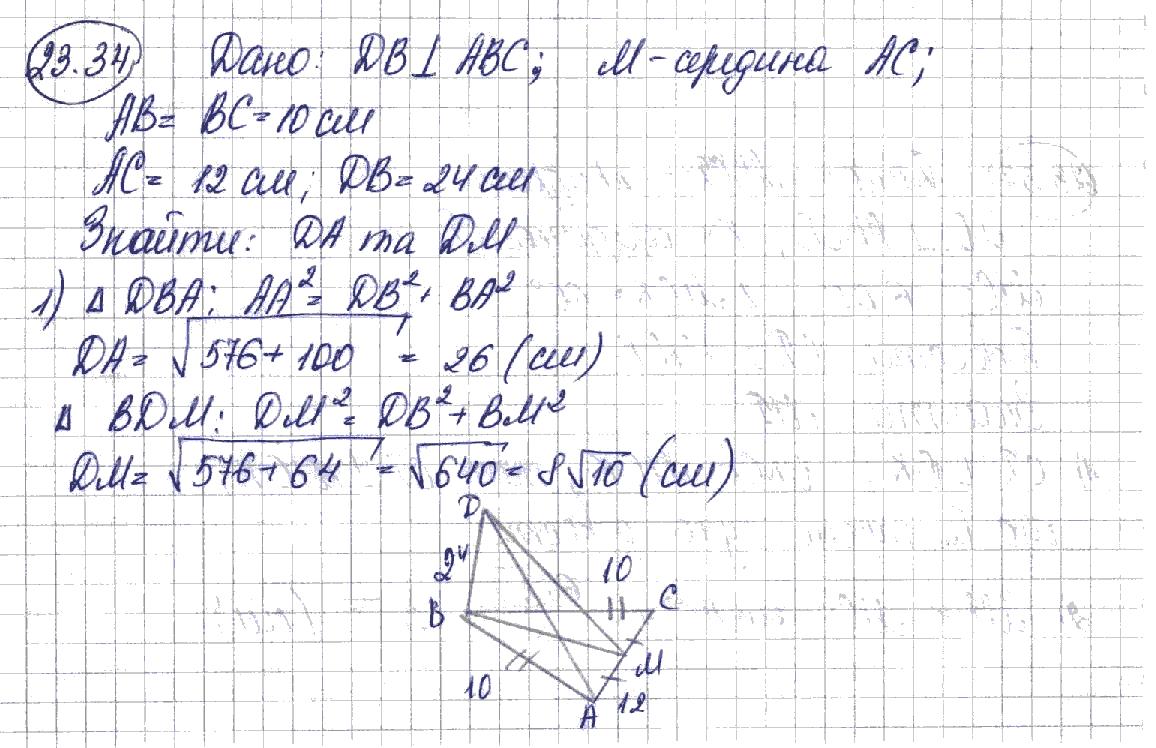 23.34 Дано: DB⊥ABC; M-середина AC;
AB= BC=10 см
AC= 12 см; DB=24 см
Знайти: DA та DM
1) Δ DBA: AA²= DB²+ BA²
DA= √576+100 = 26 (см)
Δ BDM: DM²= DB²+BM²
DM= √576+64 = √640 = 8√10 (см)
D
24
10
B
C
M
10
12
A